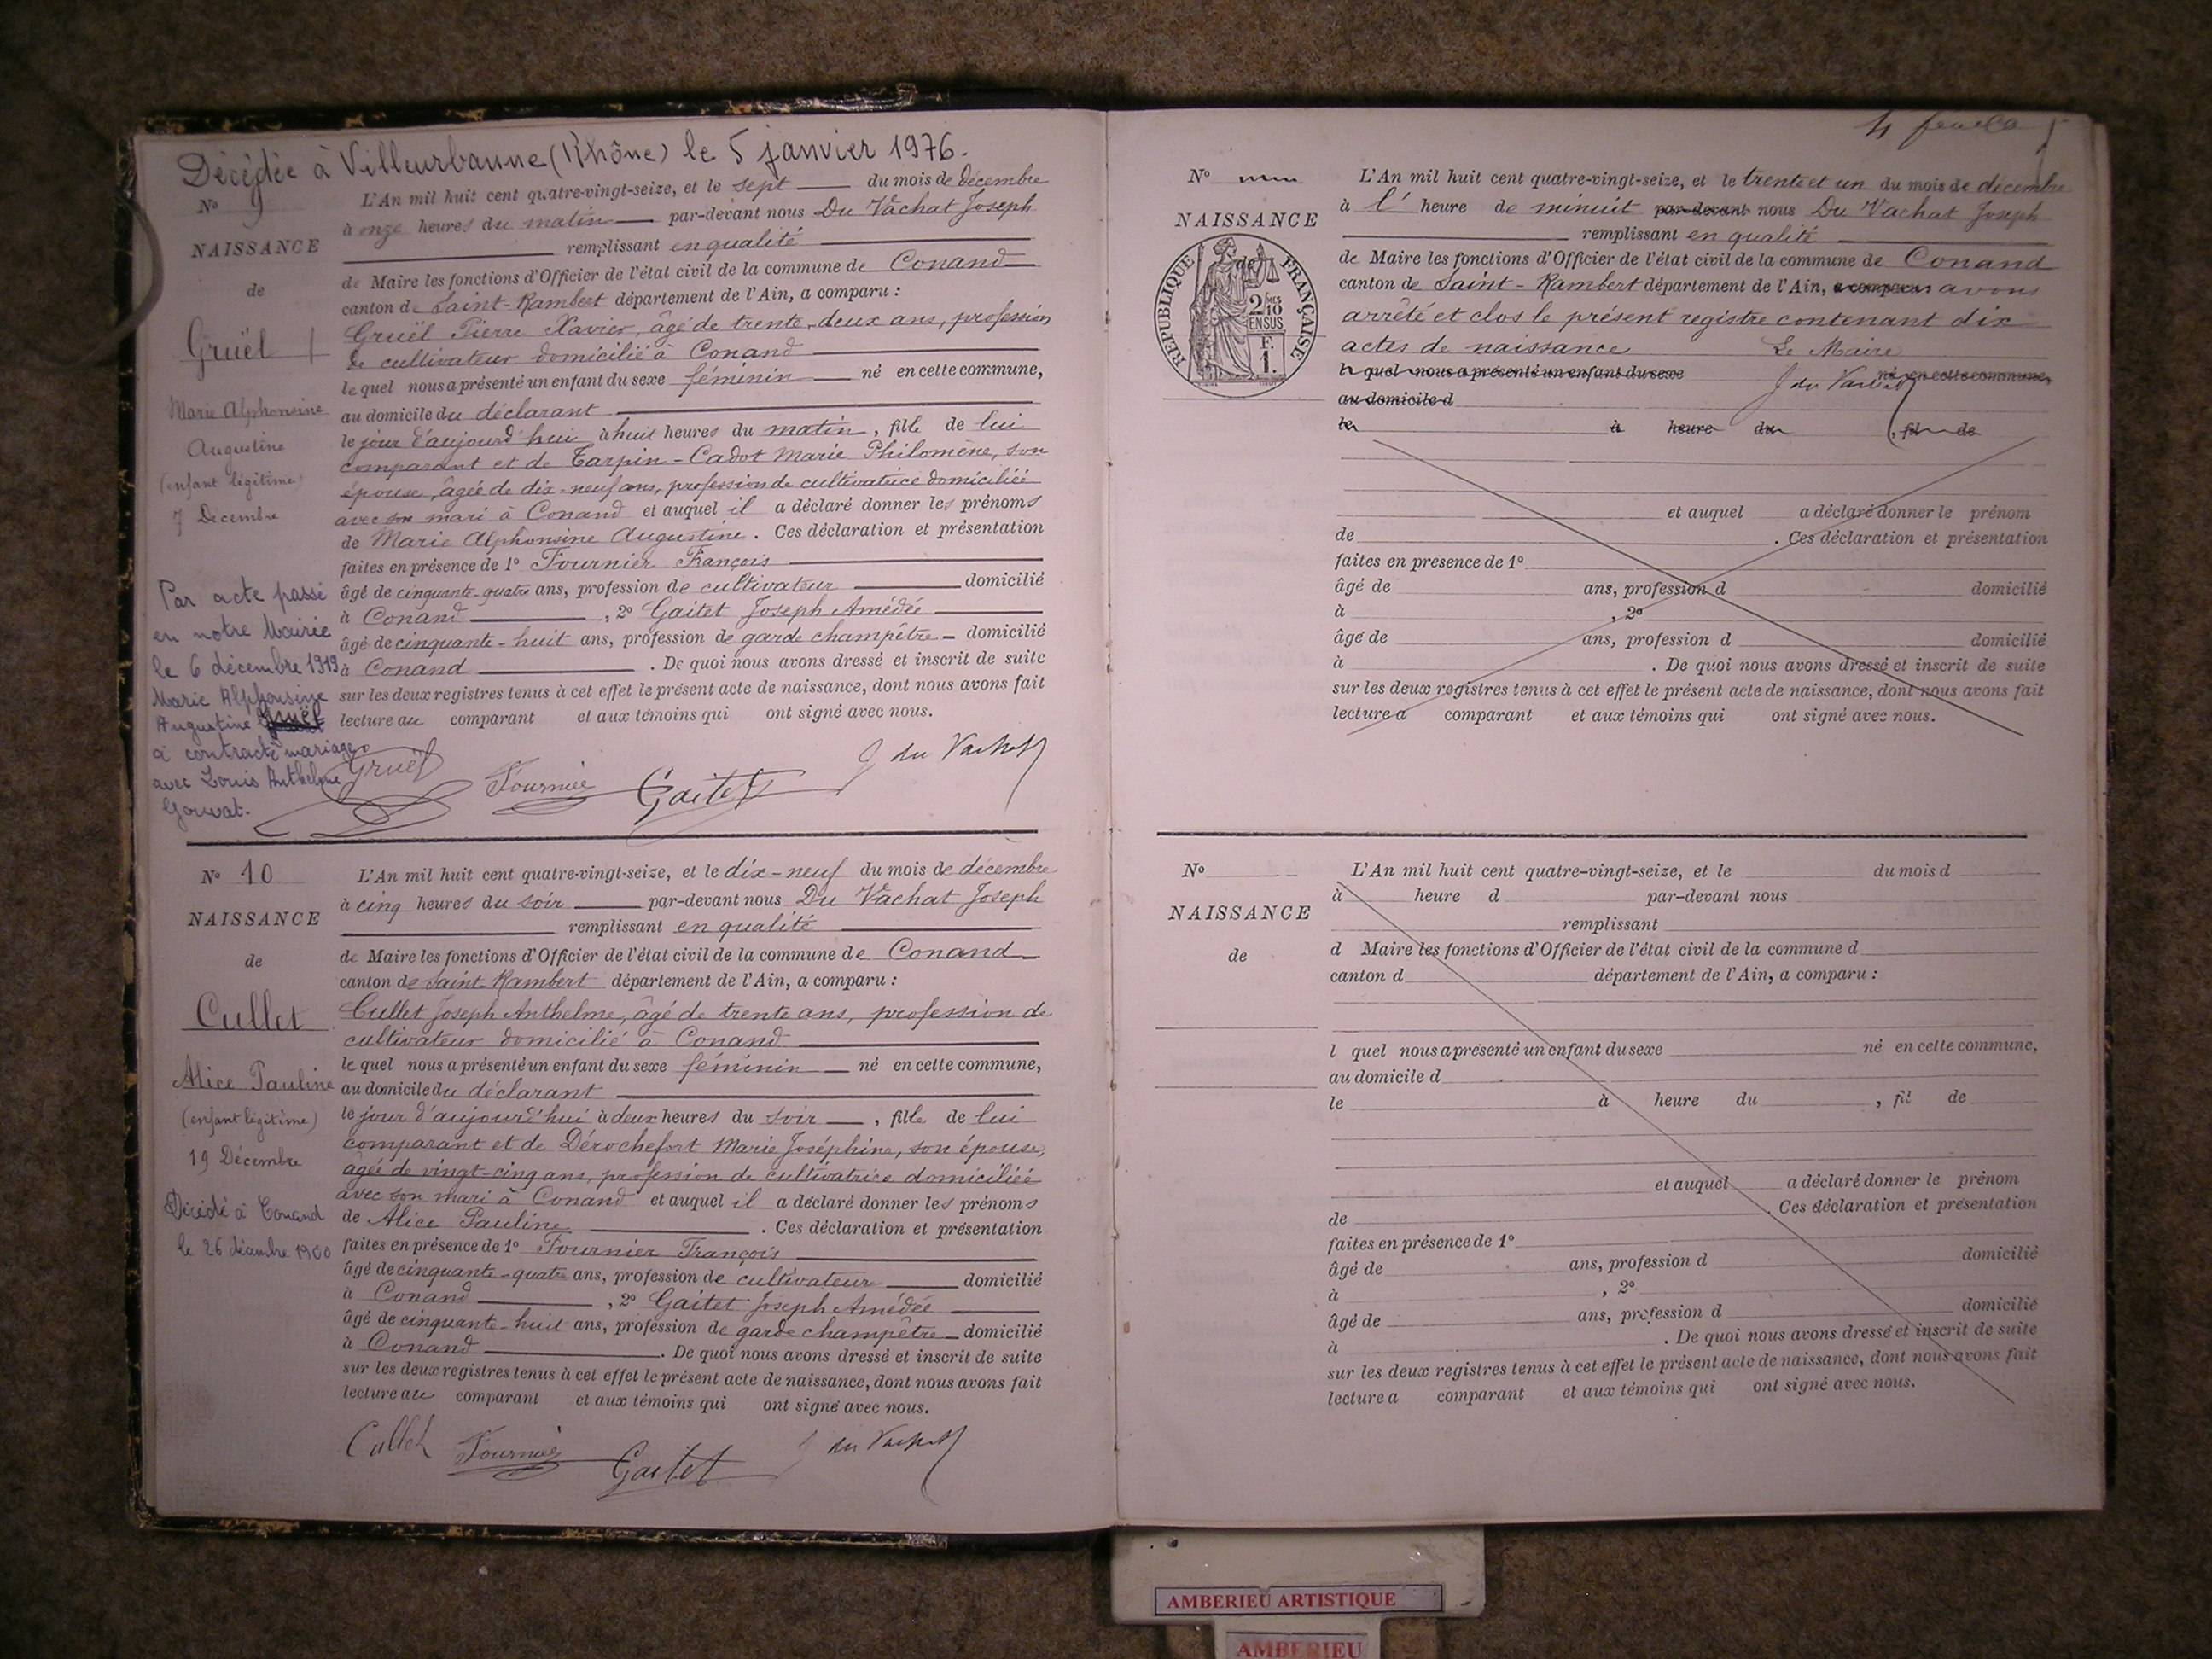 Décédée à Villeurbanne (Rhône) le 5 janvier 1976.
N° 9
NAISSANCE
de
Gruël
Marie Alphonsine
Augustine
(enfant légitime)
7 Décembre
Par acte passé
en notre Mairie
le 6 décembre 1919
Marie Alphonsine
Augustine
a contracté mariage
avec Louis Anthelme
L'An mil huit cent quatre-vingt-seize, et le sept du mois de décembre
à onze heures du matin par-devant nous Du Vachat Joseph
remplissant en qualité
de Maire les fonctions d'Officier de l'état civil de la commune de Conand
canton de Saint-Rambert département de l'Ain, a comparu :
Gruël Pierre Xavier, âgé de trente-deux ans, profession
de cultivateur domicilié à Conand
le quel nous a présenté un enfant du sexe féminin né en cette commune,
au domicile du déclarant
le jour d'aujourd'hui à huit heures du matin, fille de lui
comparant et de Tarpin-Cadot Marie Philomène, son
épouse, âgée de dix-neuf ans, profession de cultivatrice domiciliée
avec son mari à Conand et auquel il a déclaré donner les prénoms
de Marie Alphonsine Augustine. Ces déclaration et présentation
faites en présence de 1° Fournier François
âgé de cinquante-quatre ans, profession de cultivateur domicilié
à Conand, 2° Gaitet Joseph Amédée
âgé de cinquante-huit ans, profession de garde champêtre domicilié
à Conand. De quoi nous avons dressé et inscrit de suite
sur les deux registres tenus à cet effet le présent acte de naissance, dont nous avons fait
lecture au comparant et aux témoins qui ont signé avec nous.
Gruël Fournier Gaitet J du Vachat
N° 10
NAISSANCE
de
Cullet
Alice Pauline
(enfant légitime)
19 Décembre
Décédé à Conand
le 26 décembre 1900
L'An mil huit cent quatre-vingt-seize, et le dix-neuf du mois de décembre
à cinq heures du soir par-devant nous Du Vachat Joseph
remplissant en qualité
de Maire les fonctions d'Officier de l'état civil de la commune de Conand
canton de Saint-Rambert département de l'Ain, a comparu :
Cullet Joseph Anthelme, âgé de trente ans, profession de
cultivateur domicilié à Conand
le quel nous a présenté un enfant du sexe féminin né en cette commune,
au domicile du déclarant
le jour d'aujourd'hui à deux heures du soir, fille de lui
comparant et de Dérochefort Marie Joséphine, son épouse,
âgée de vingt-cinq ans, profession de cultivatrice domiciliée
avec son mari à Conand et auquel il a déclaré donner les prénoms
de Alice Pauline. Ces déclaration et présentation
faites en présence de 1° Fournier François
âgé de cinquante-quatre ans, profession de cultivateur domicilié
à Conand, 2° Gaitet Joseph Amédée
âgé de cinquante-huit ans, profession de garde champêtre domicilié
à Conand. De quoi nous avons dressé et inscrit de suite
sur les deux registres tenus à cet effet le présent acte de naissance, dont nous avons fait
lecture au comparant et aux témoins qui ont signé avec nous.
Cullet Fournier Gaitet J du Vachat
N°
NAISSANCE
de
REPUBLIQUE FRANÇAISE
2/10 EN SUS
F. 1.
L'An mil huit cent quatre-vingt-seize, et le trente et un du mois de décembre
à l'heure de minuit par-devant nous Du Vachat Joseph
remplissant en qualité
de Maire les fonctions d'Officier de l'état civil de la commune de Conand
canton de Saint-Rambert département de l'Ain, a comparu avons
arrêté et clos le présent registre contenant dix
actes de naissance Le Maire
le quel nous a présenté un enfant du sexe né en cette commune,
J du Vachat
au domicile d
le à heure du , fil de
et auquel a déclaré donner le prénom
de . Ces déclaration et présentation
faites en présence de 1°
âgé de ans, profession d domicilié
à , 2°
âgé de ans, profession d domicilié
à . De quoi nous avons dressé et inscrit de suite
sur les deux registres tenus à cet effet le présent acte de naissance, dont nous avons fait
lecture a comparant et aux témoins qui ont signé avec nous.
N°
NAISSANCE
de
L'An mil huit cent quatre-vingt-seize, et le du mois d
à heure d par-devant nous
remplissant
d Maire les fonctions d'Officier de l'état civil de la commune d
canton d département de l'Ain, a comparu :
l quel nous a présenté un enfant du sexe né en cette commune,
au domicile d
le à heure du , fil de
et auquel a déclaré donner le prénom
de . Ces déclaration et présentation
faites en présence de 1°
âgé de ans, profession d domicilié
à , 2°
âgé de ans, profession d domicilié
à . De quoi nous avons dressé et inscrit de suite
sur les deux registres tenus à cet effet le présent acte de naissance, dont nous avons fait
lecture a comparant et aux témoins qui ont signé avec nous.
AMBERIEU ARTISTIQUE
AMBERIEU